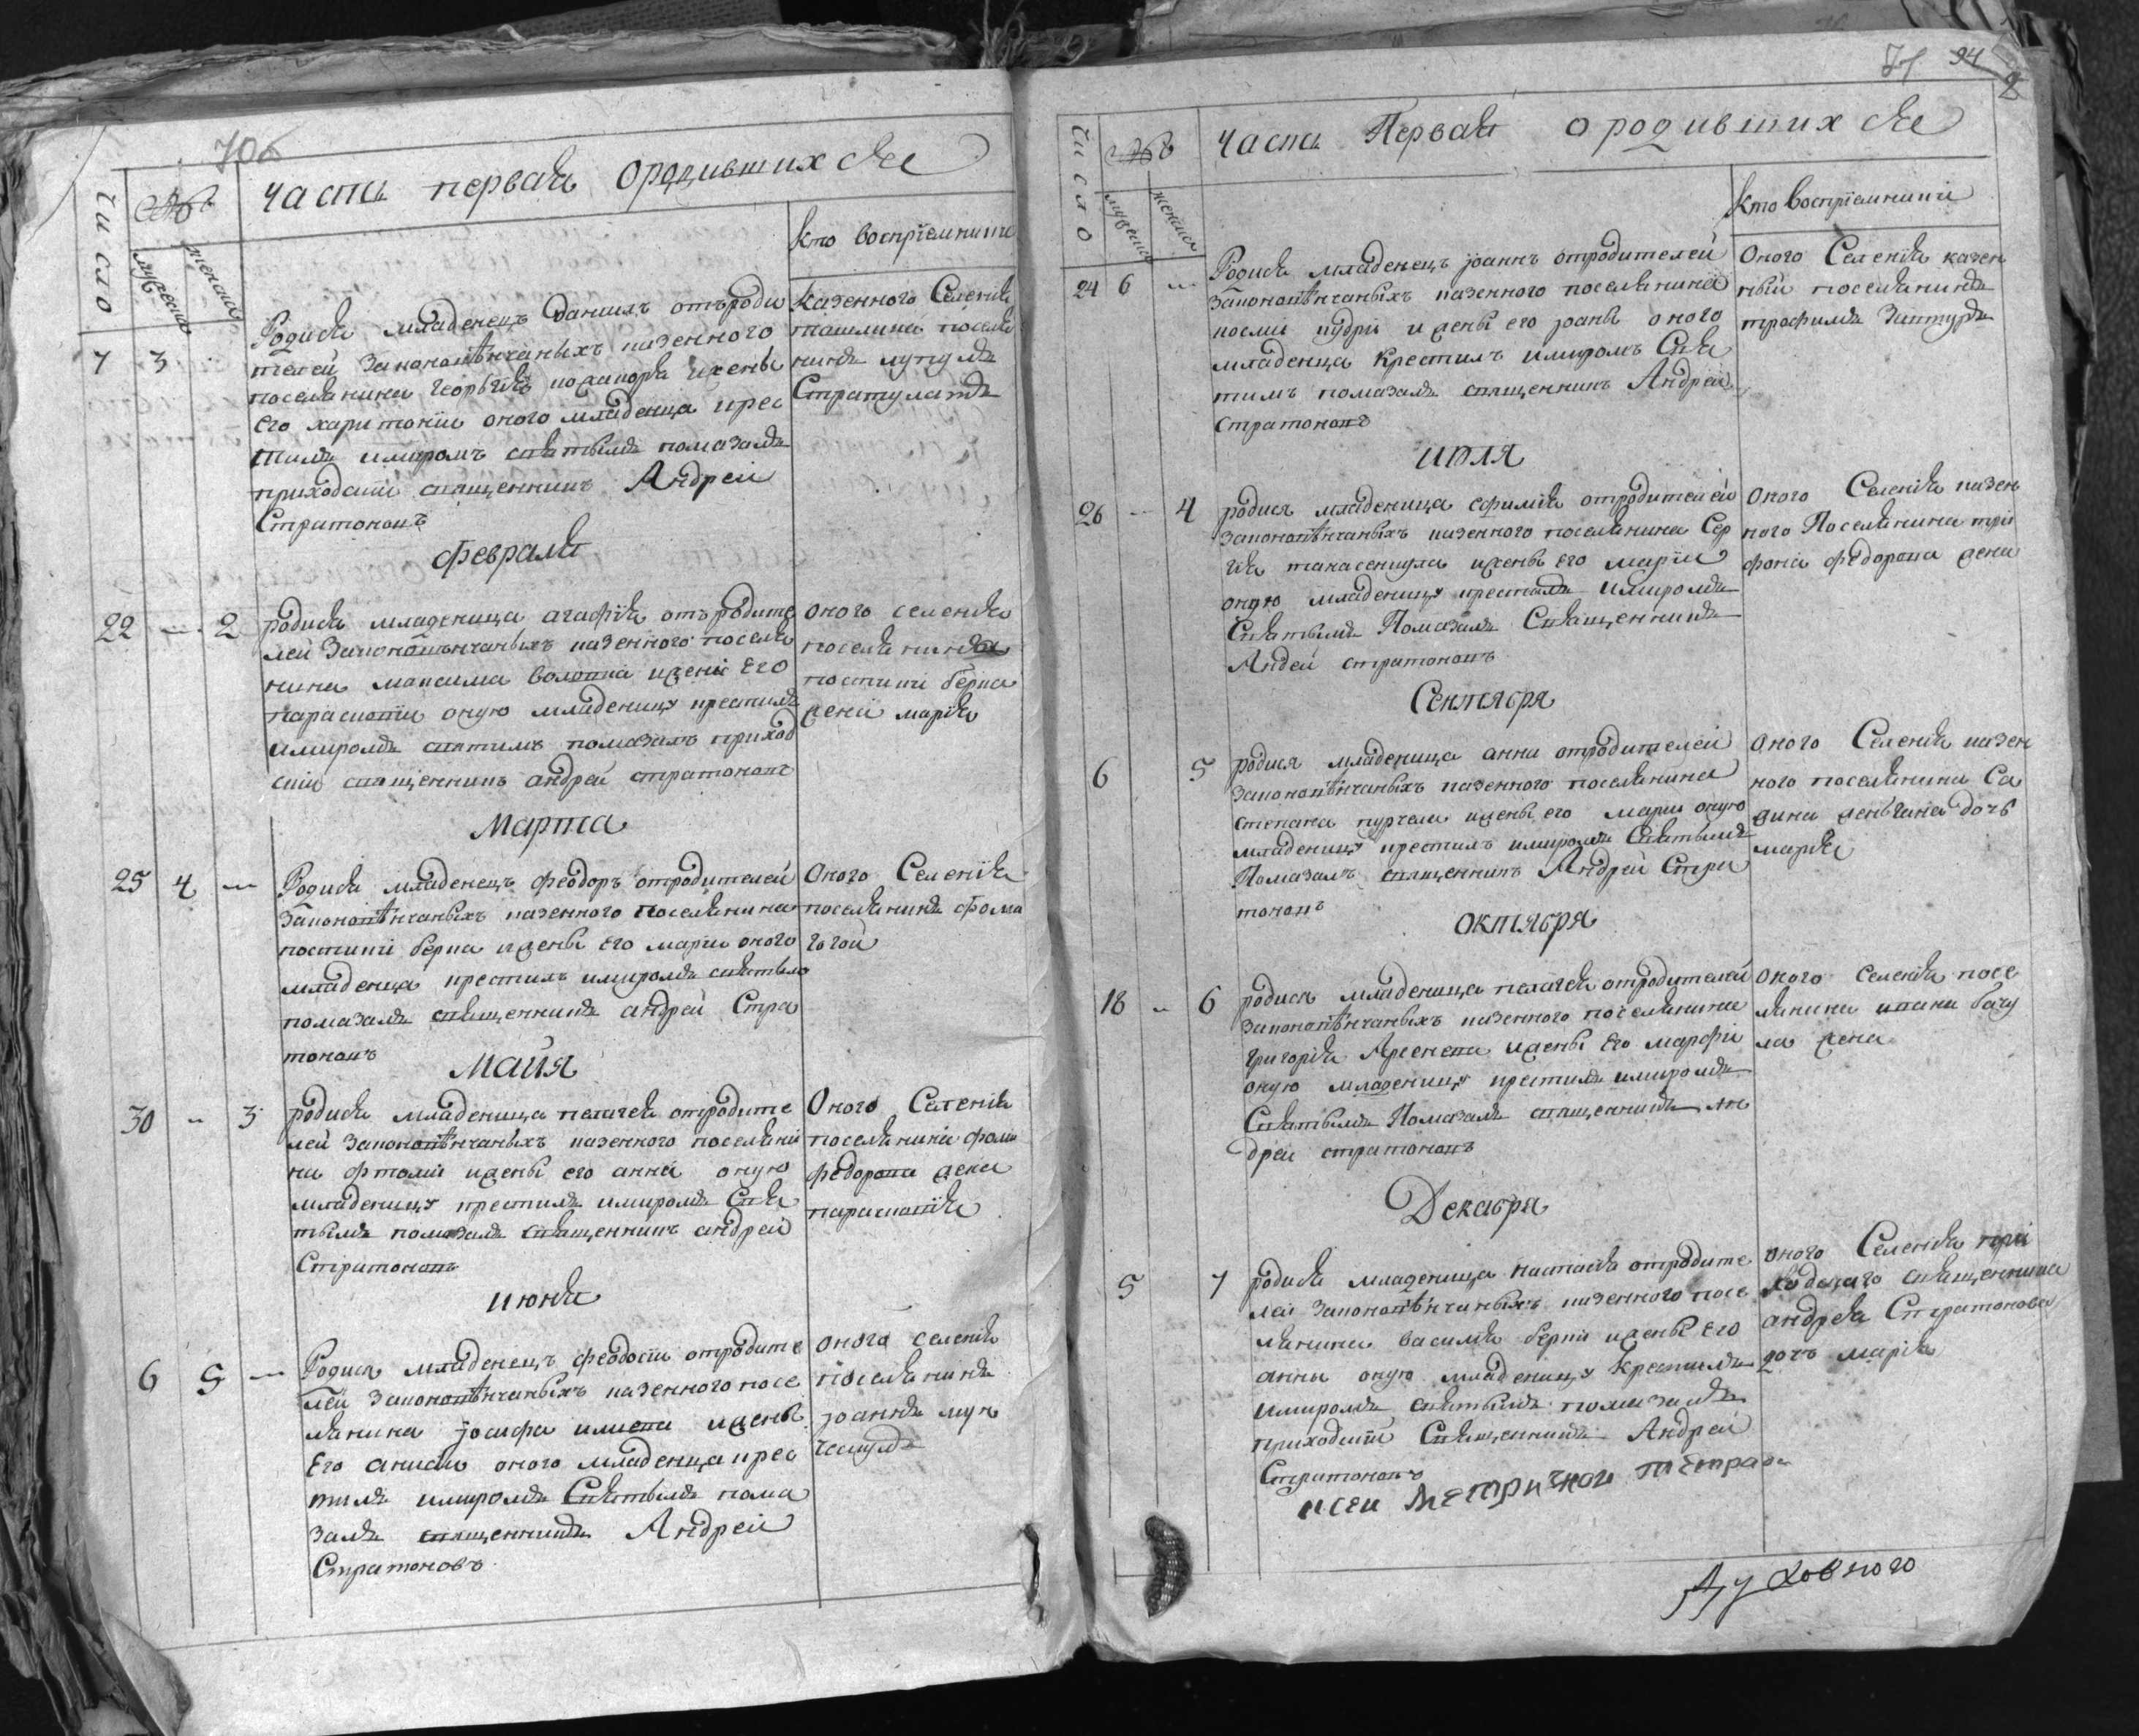 70б
часть первая ородившихся
число
№в
мужеска
женска
кто восприемники
7 3
Родися младенецъ Даниилъ отъроди
телей законовѣнчаныхъ казенного
поселянина георьгия кожакоря ижены
Его харитонии оного младенца крес
тилъ имиромъ святымъ помазалъ
приходский священникъ Андрей
Стратоновъ
казенного Селения
ташлика поселя
нинъ лупулъ
Стратулатъ
Февраля
22 — 2
родися младеница агафия отъродите
лей Законовѣнчаныхъ казенного поселя
нина максима волонка ижени Его
параскотии оную младеницу крестилъ
имиромъ святимъ помазалъ приход
ский священникъ андрей стратоновъ
оного селения
поселянина
костики берка
жени мария
Марта
25 4 —
Родися младенецъ феодоръ отродителей
Законовѣнчаныхъ казенного поселянина
костики берка ижены Его марии оного
младенца крестилъ имиромъ святымо
помазалъ священникъ андрей Стра
тоновъ
Оного Селения
поселянинъ фома
гогой
Майя
30 — 3
родися младеница пелагея отродите
лей Законовѣнчаныхъ казенного поселяни
на ижены его анни оную
младеницу крестилъ имиромъ Свя
тымъ помазалъ священникъ андрей
Стратоновъ
Оного Селения
поселянина фоми
федорова жена
параскотия
июня
6 5 —
Родися младенецъ феодосии отродите
лей Законовѣнчаныхъ казенного посе
лянина јосифа ижены
Его оного младенца крес
тилъ имиромъ Святымъ пома
залъ священникъ Андрей
Стратоновъ
оного селения
поселянинъ
јоаннъ мун
71 94
8
часть Первая ородившихся
число
№в
мужеска
женска
кто восприемники
24 6 —
Родися младенецъ јоаннъ отродителей
Законовѣнчаныхъ казенного поселянина
ижены его јоаны оного
младенца крестилъ имиромъ Свя
тимъ помазалъ священникъ Андрей
стратоновъ
Оного Селения казен
ный поселянинъ
трофимъ
июля
26 — 4
родися младеница ефимия отродителей
Законовѣнчаныхъ казенного поселянина Сер
гия ижены Его марии
оную младеницу крестилъ имиромъ
Святымъ Помазалъ Священникъ
Андей стратоновъ
Оного Селения казен
ного Поселянина три
фона федорова жена
Сентября
6 5
родися младеница анна отродителей
Законовѣнчаныхъ казенного поселянина
степана курчели ижены его марии оную
младеницу крестилъ имиромъ Святымъ
Помазалъ священникъ Андрей Стра
тоновъ
Оного Селения казен
ного поселянина Са
дочь
мария
октября
18 — 6
родися младеница пелагея отродителей
Законовѣнчаныхъ казенного поселянина
григория Арсенева ижены Его марфи
оную младеницу крестилъ имиромъ
Святымъ Помазалъ священникъ Ан
дрей стратоновъ
Оного Селения посе
лянина ивана бачу
ла жена
Декабря
5 7
родися младеница настасия отродите
лей Законовѣнчаныхъ казенного посе
лянина василия берки ижены Его
анны оную младеницу крестилъ
имиромъ святымъ помазалъ
приходский Священникъ Андрей
Стратоновъ
оного Селения при
ходскаго священника
андрея Стратонова
дочъ мария
исеи метричной тетради
Духовного